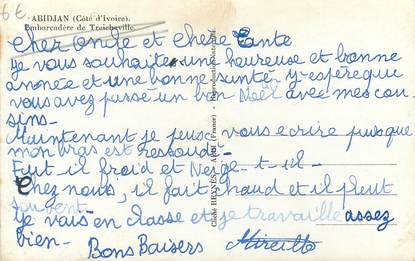 6€
ABIDJAN (Côte d'Ivoire).
Embarcadère de Treichville
Cher Oncle et Chère Tante
Je vous souhaite une heureuse et bonne
année et une bonne santé. J'espère que
vous avez passé un bon Noël avec mes cou
sins-
Maintenant je peux vous ecrire puisque
mon bras est ressoudé-
Fait-il froid et Neige-t-il-
Chez nous, il fait chaud et il pleut
souvent
Je vais en classe et je travaille assez
bien-
Bons Baisers Mireille
Cliché REYNES - (France) -